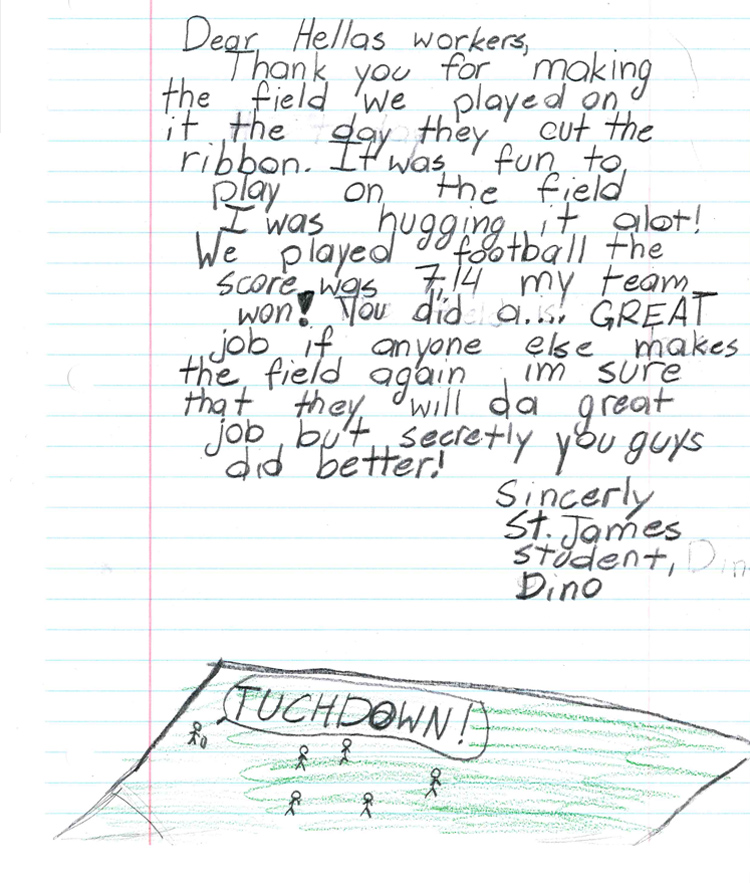 Dear Hellas workers,
Thank you for making
the field we played on
it the day they cut the
ribbon. It was fun to
play on the field
I was hugging it alot!
We played football the
score was 7,14 my team
won! You did a.... GREAT
job if anyone else makes
the field again im sure
that they will da great
job but secretly you guys
did better!
Sincerly
St. James
student, Din
Dino
TUCHDOWN!